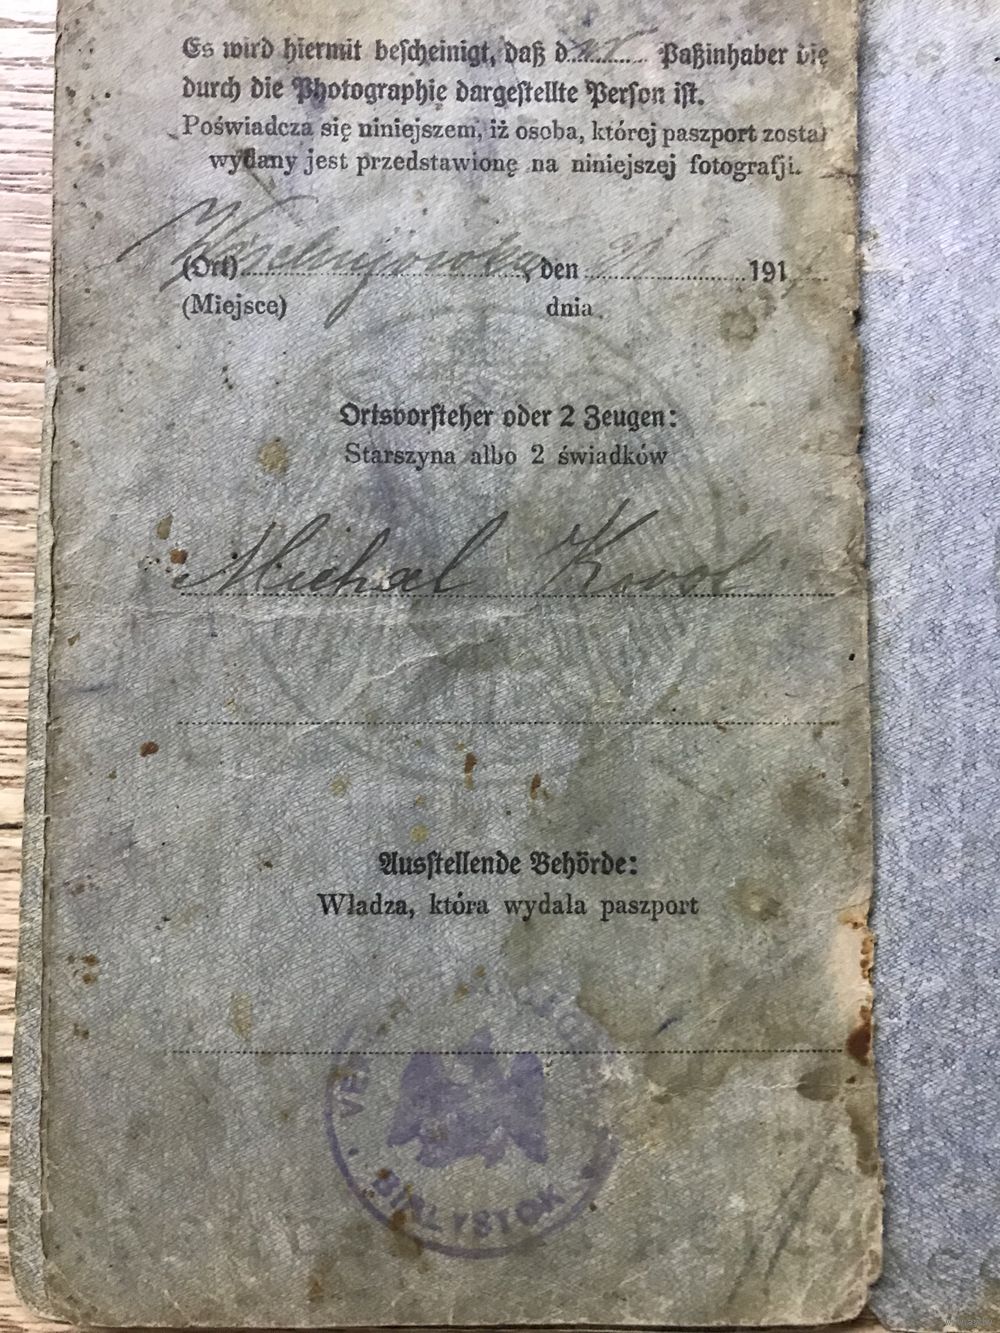 Es wird hiermit bescheinigt, daß d er Paßinhaber die
durch die Photographie dargestellte Person ist.
Poświadcza się niniejszem, iż osoba, której paszport został
wydany jest przedstawionę na niniejszej fotografji.
(Ort) , den 191
(Miejsce) dnia
Ortsvorsteher oder 2 Zeugen:
Starszyna albo 2 świadków
Michael Korol
Ausstellende Behörde:
Władza, która wydała paszport
BIALYSTOK